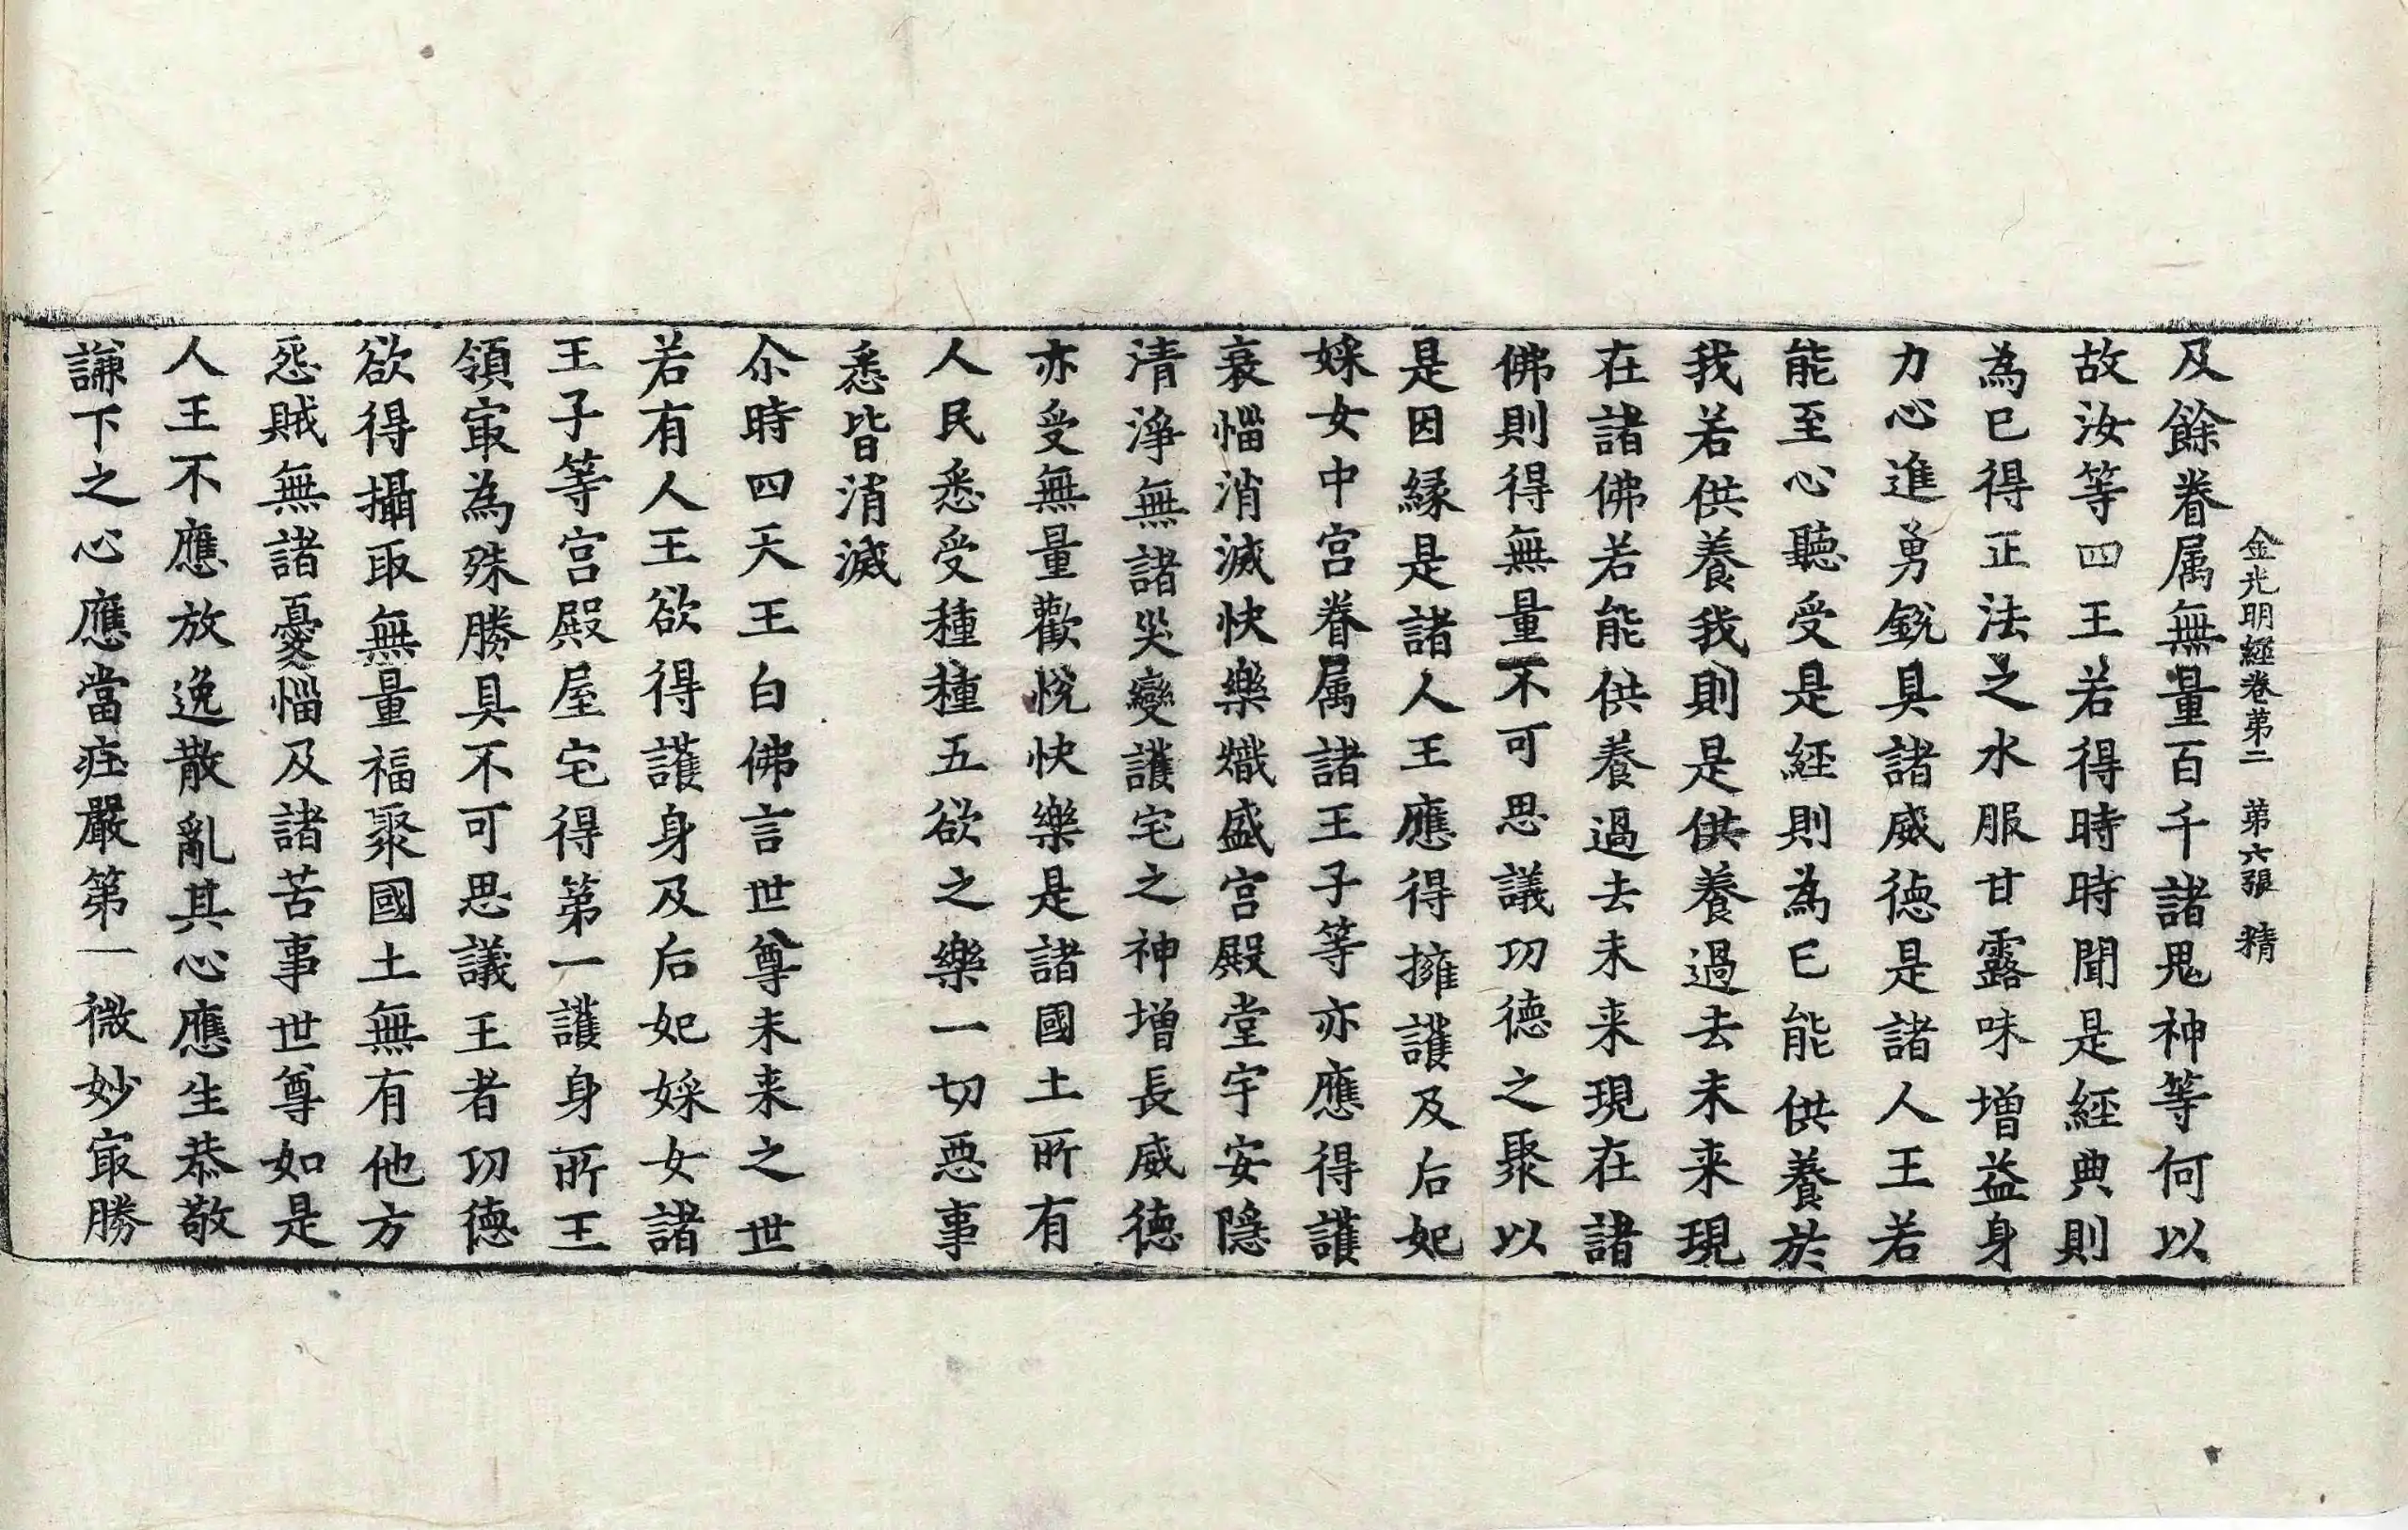 金光明經卷第二 第六張 精
及餘眷属無量百千諸鬼神等何以
故汝等四王若得時時聞是經典則
為已得正法之水服甘露味增益身
力心進勇銳具諸威德是諸人王若
能至心聽受是經則為已能供養於
我若供養我則是供養過去未来現
在諸佛若能供養過去未来現在諸
佛則得無量不可思議功德之聚以
是因緣是諸人王應得擁護及后妃
婇女中宮眷属諸王子等亦應得護
衰惱消滅快樂熾盛宮殿堂宇安隱
清淨無諸災變護宅之神增長威德
亦受無量歡悅快樂是諸國土所有
人民悉受種種五欲之樂一切惡事
悉皆消滅
尒時四天王白佛言世尊未来之世
若有人王欲得護身及后妃婇女諸
王子等宮殿屋宅得第一護身所王
領㝡為殊勝具不可思議王者功德
欲得攝取無量福聚國土無有他方
怨賊無諸憂惱及諸苦事世尊如是
人王不應放逸散亂其心應生恭敬
謙下之心應當莊嚴第一微妙㝡勝